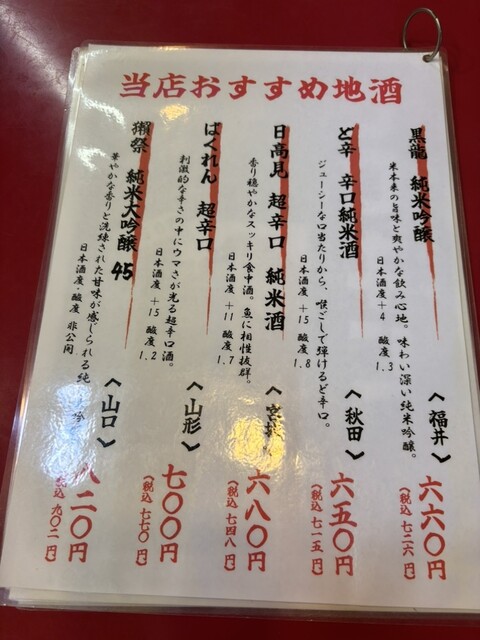 当店おすすめ地酒
黒龍 純米吟醸
米本来の旨味と爽やかな飲み心地。味わい深い純米吟醸。
日本酒度+4 酸度1.3
〈福井〉
六六〇円
(税込 七二六円)
ど辛 辛口純米酒
ジューシーな口当たりから、喉ごしで弾けるど辛口。
日本酒度+15 酸度1.8
〈秋田〉
六五〇円
(税込 七一五円)
日高見 超辛口 純米酒
香り穏やかなスッキリ食中酒。魚に相性抜群。
日本酒度+11 酸度1.7
〈宮城〉
六八〇円
(税込 七四八円)
ばくれん 超辛口
刺激的な辛さの中にウマさが光る超辛口酒。
日本酒度+15 酸度1.2
〈山形〉
七〇〇円
(税込 七七〇円)
獺祭 純米大吟醸 45
華やかな香りと洗練された甘味が感じられる純
日本酒度・酸度 非公開
〈山口〉
八二〇円
(税込 九〇二円)